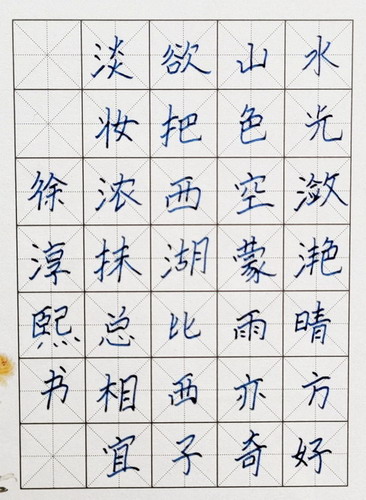 水光潋滟晴方好
山色空蒙雨亦奇
欲把西湖比西子
淡妆浓抹总相宜
徐淳熙书